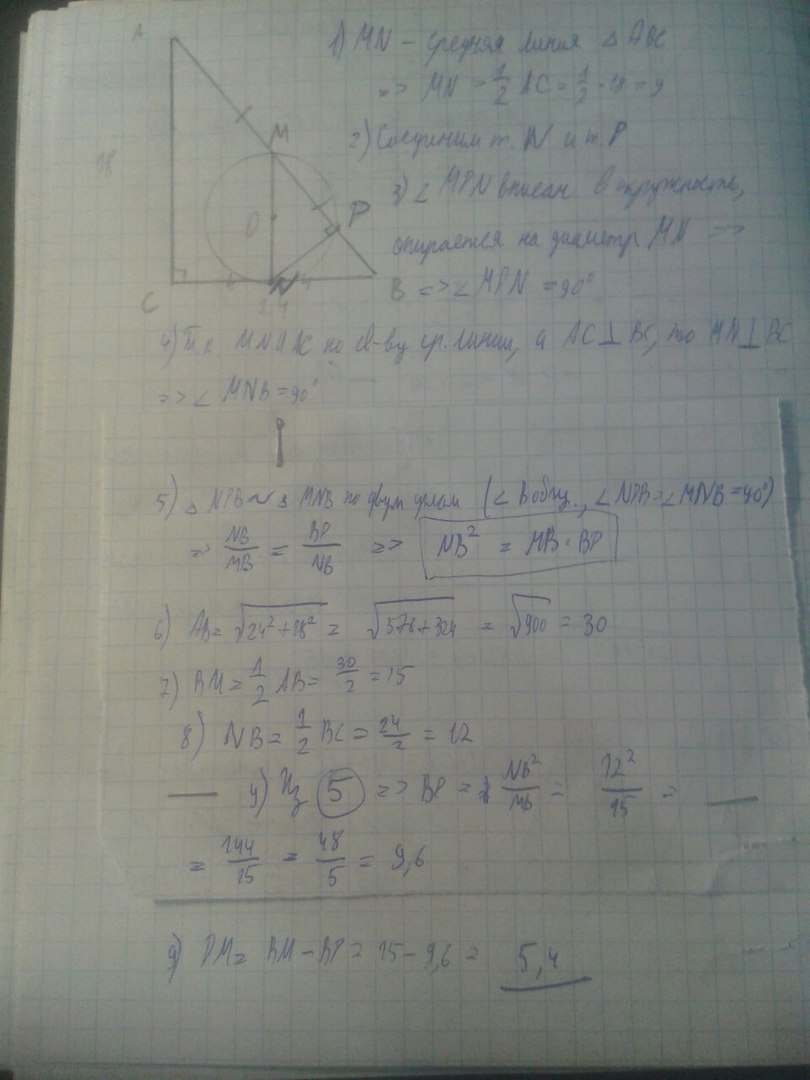 A
1) MN – средняя линия △ ABC
=> MN = 1/2 AC = 1/2 · 18 = 9
M
2) Соединим т. N и т. P
18
3) ∠ MPN вписан в окружность,
P
O
опирается на диаметр MN =>
C
N
B
=> ∠ MPN = 90°
24
4) Т.к. MN ∥ AC по св-ву ср. линии, а AC ⊥ BC, то MN ⊥ BC
=> ∠ MNB = 90°
5) △ NPB ~ △ MNB по двум углам (∠ B общ., ∠ NPB = ∠ MNB = 90°)
=> NB/MB = BP/NB => NB² = MB · BP
6) AB = √24² + 18² = √576 + 324 = √900 = 30
7) BM = 1/2 AB = 30/2 = 15
8) NB = 1/2 BC = 24/2 = 12
9) Из 5 => BP = NB²/MB = 12²/15 =
= 144/15 = 48/5 = 9,6
9) PM = BM – BP = 15 – 9,6 = 5,4